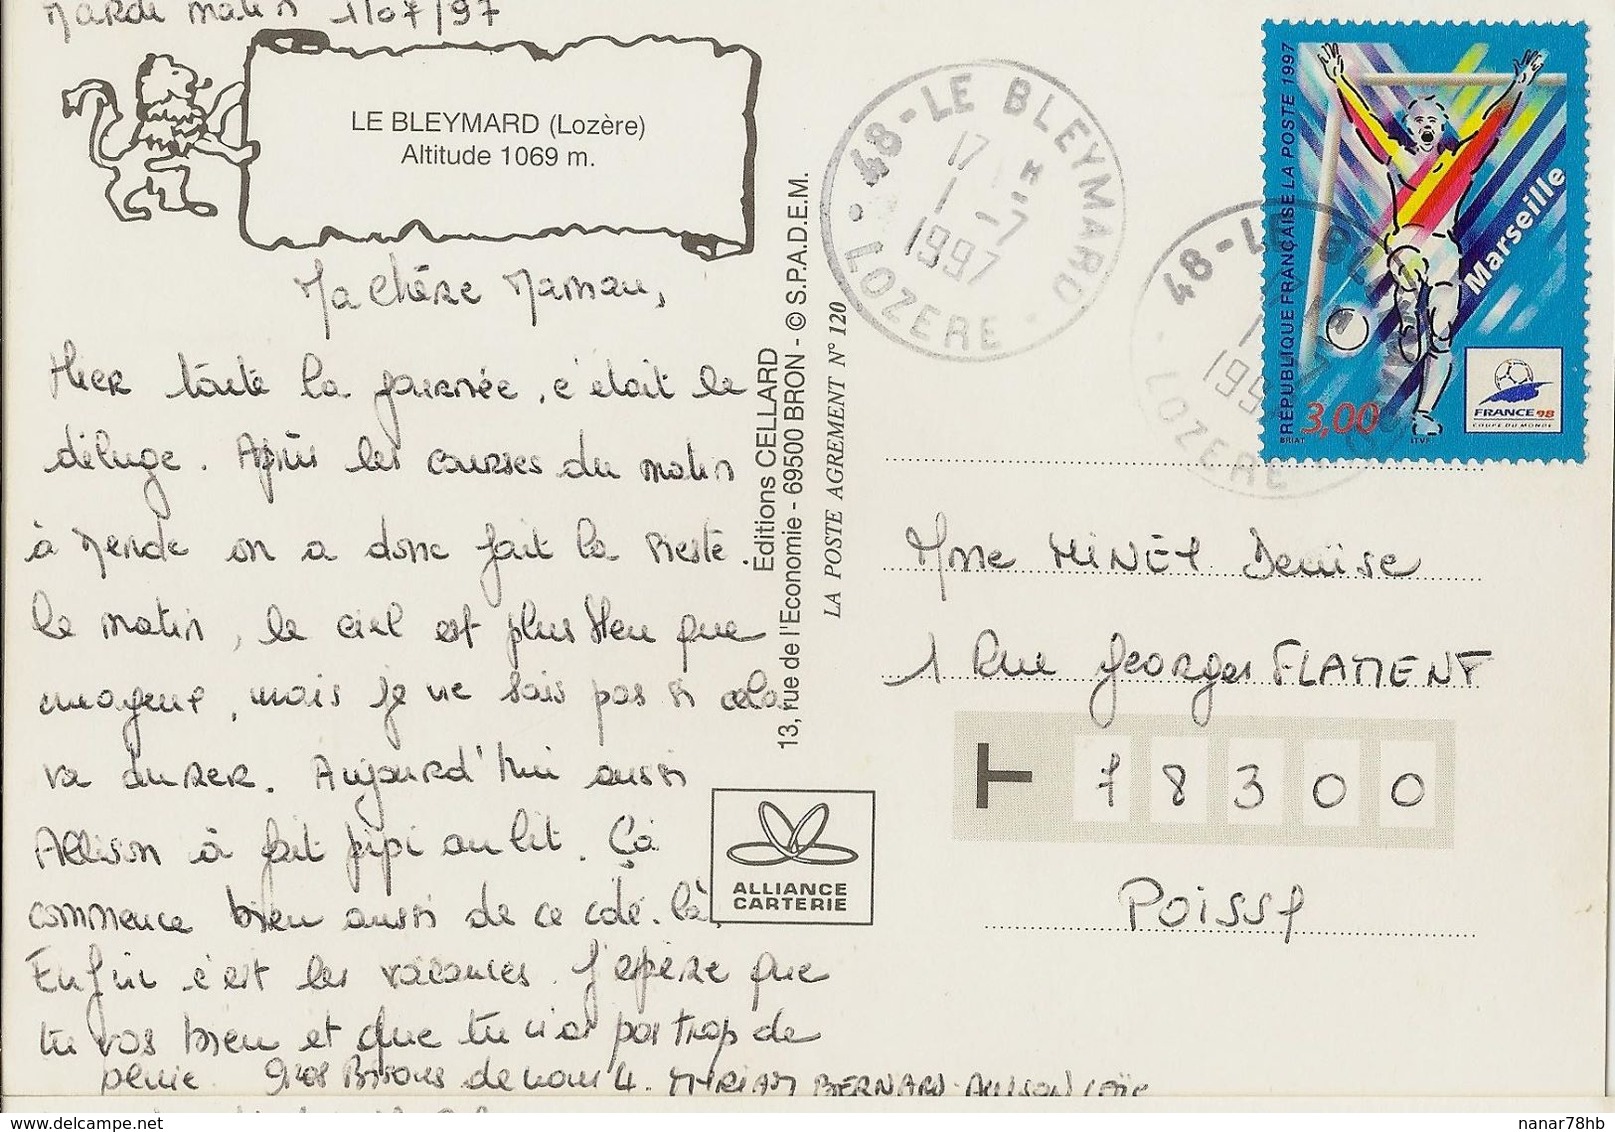 Mardi matin 1/07/97
LE BLEYMARD (Lozère)
Altitude 1069 m.
Ma chère Maman,
Hier toute la journée, c'était le
déluge. Après les courses du matin
à Mende on a donc fait la sieste.
Le matin, le ciel est plus bleu que
mais je ne sais pas si cela
va durer. Aujourd'hui aussi
Allison à fait pipi au lit. Çà
commence bien aussi de ce côté-là.
Enfin c'est les vacances. J'espère que
tu vas bien et que tu n'as pas trop de
pluie. gros Bisous de nous 4. MYRIAM BERNARD ALLISON LOÏC
Éditions CELLARD
13, rue de l'Economie - 69500 BRON - © S.P.A.D.E.M.
LA POSTE AGREMENT N° 120
ALLIANCE
CARTERIE
48-LE BLEYMARD
17 H
1-7
1997
LOZERE
48-LE BLEYMARD
1-7
1997
LOZERE
RÉPUBLIQUE FRANÇAISE LA POSTE 1997
Marseille
3,00
FRANCE 98
COUPE DU MONDE
BRIAT
ITVF
Mme MINET Denise
1 Rue Georges FLAMENT
78300
POISSY
nanar78hb